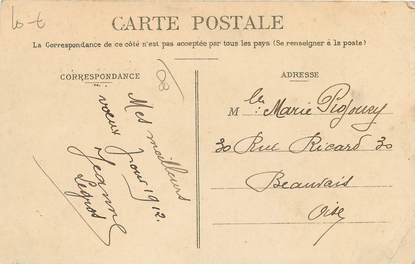 CARTE POSTALE
La Correspondance de ce côté n'est pas acceptée par tous les pays (Se renseigner à la poste)
CORRESPONDANCE
ADRESSE
80
Mes meilleurs
voeux pour 1912.
Jeanne
Legros
Mlle Marie
30 Rue Ricard 30
Beauvais
Oise